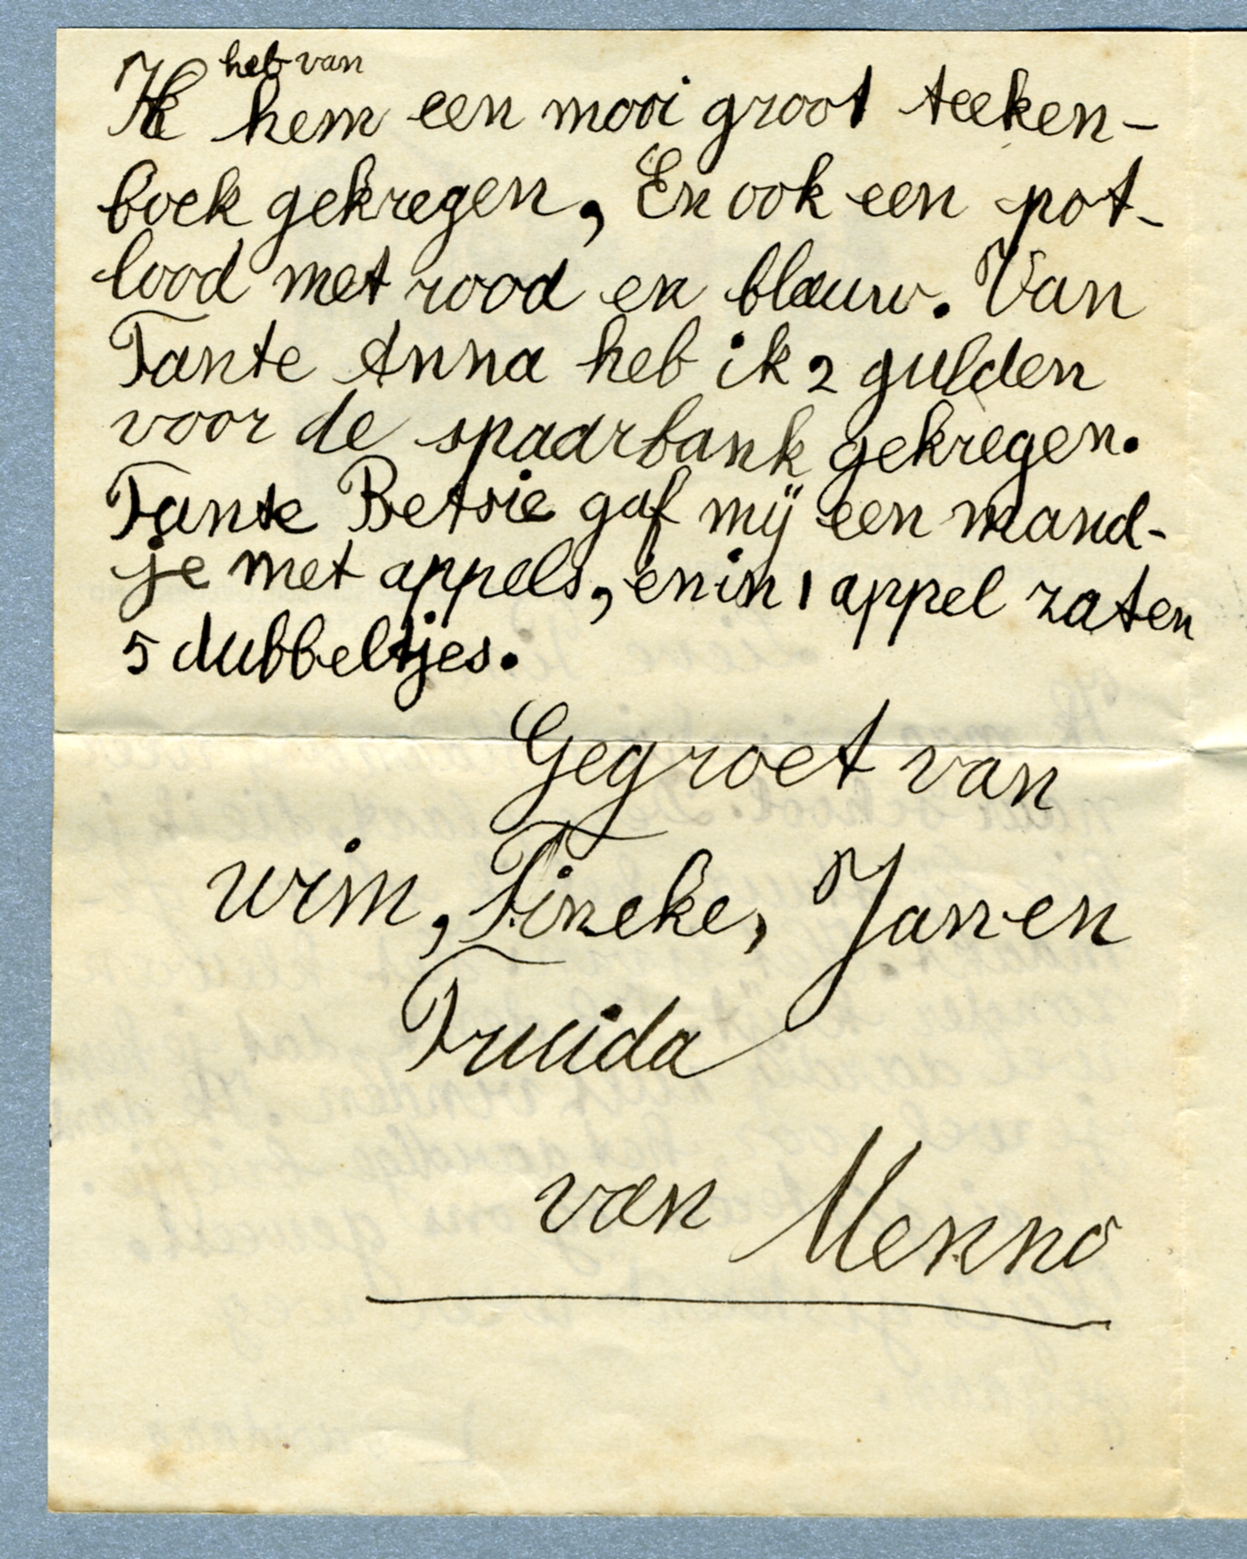 heb van
Ik hem een mooi groot teeken-
boek gekregen, En ook een pot-
lood met rood en blauw. Van
Tante Anna heb ik 2 gulden
voor de spaarbank gekregen.
Tante Betsie gaf mij een mand-
je met appels, en in 1 appel zaten
5 dubbeltjes.
Gegroet van
Wim, Tineke, Jan en
Truida
van Menno